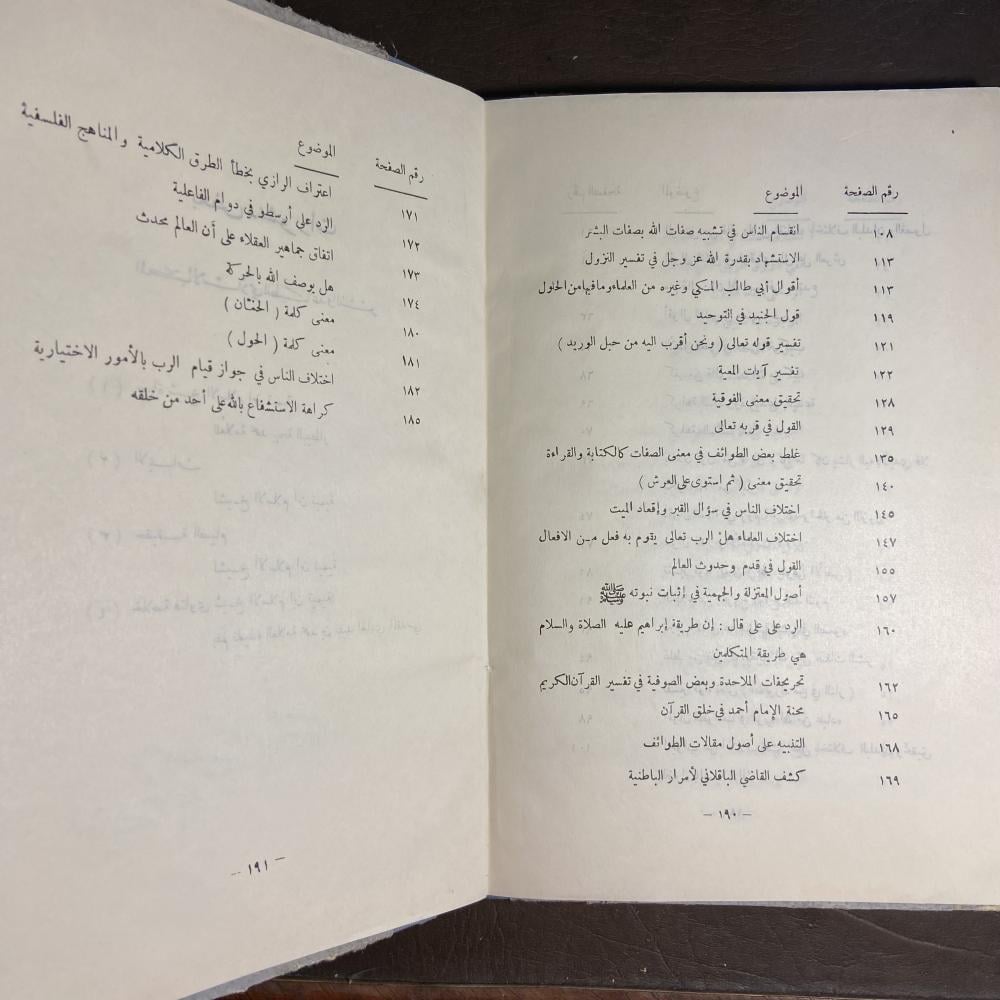 رقم الصفحة الموضوع
١٠٨ انقسام الناس في تشبيه صفات الله بصفات البشر
١١٣ الاستشهاد بقدرة الله عز وجل في تفسير النزول
١١٣ أقوال أبي طالب المكي وغيره من العلماء وما فيها من الحلول
١١٩ قول الجنيد في التوحيد
١٢١ تفسير قوله تعالى ( ونحن أقرب اليه من حبل الوريد )
١٢٢ تفسير آيات المعية
١٢٨ تحقيق معنى الفوقية
١٢٩ القول في قربه تعالى
١٣٥ غلط بعض الطوائف في معنى الصفات كالكتابة والقراءة
١٤٠ تحقيق معنى ( ثم استوى على العرش )
١٤٥ اختلاف الناس في سؤال القبر وإقعاد الميت
١٤٧ اختلاف العلماء هل الرب تعالى يقوم به فعل من الافعال
١٥٥ القول في قدم وحدوث العالم
١٥٧ أصول المعتزلة والجهمية في إثبات نبوته ﷺ
١٦٠ الرد على على قال : إن طريقة إبراهيم عليه الصلاة والسلام
هي طريقة المتكلمين
١٦٢ تحريفات الملاحدة وبعض الصوفية في تفسير القرآن الكريم
١٦٥ محنة الإمام أحمد في خلق القرآن
١٦٨ التنبيه على أصول مقالات الطوائف
١٦٩ كشف القاضي الباقلاني لأسرار الباطنية
– ١٩٠ –
رقم الصفحة الموضوع
١٧١ اعتراف الرازي بخطأ الطرق الكلامية والمناهج الفلسفية
١٧٢ الرد على أرسطو في دوام الفاعلية
١٧٣ اتفاق جماهير العقلاء على أن العالم محدث
١٧٤ هل يوصف الله بالحركة
١٨٠ معنى كلمة ( الحنان )
١٨١ معنى كلمة ( الحول )
١٨٢ اختلاف الناس في جواز قيام الرب بالأمور الاختيارية
١٨٥ كراهة الاستشفاع بالله على أحد من خلقه
– ١٩١ –